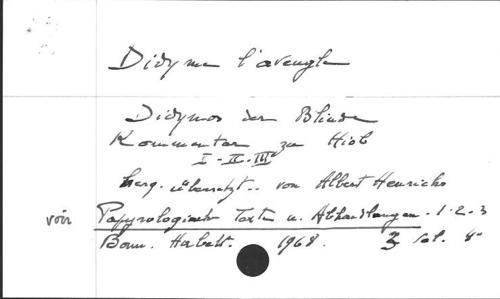 Didyme l'aveugle
Didymos der Blinde
Kommentar zu Hiob
I - II - III
herg. übersetzt.. von Albert Henrichs
voir Papyrologische Texte u. Abhandlungen. 1-2-3
Bonn. Habelt. 1968. 3 vol. 8°